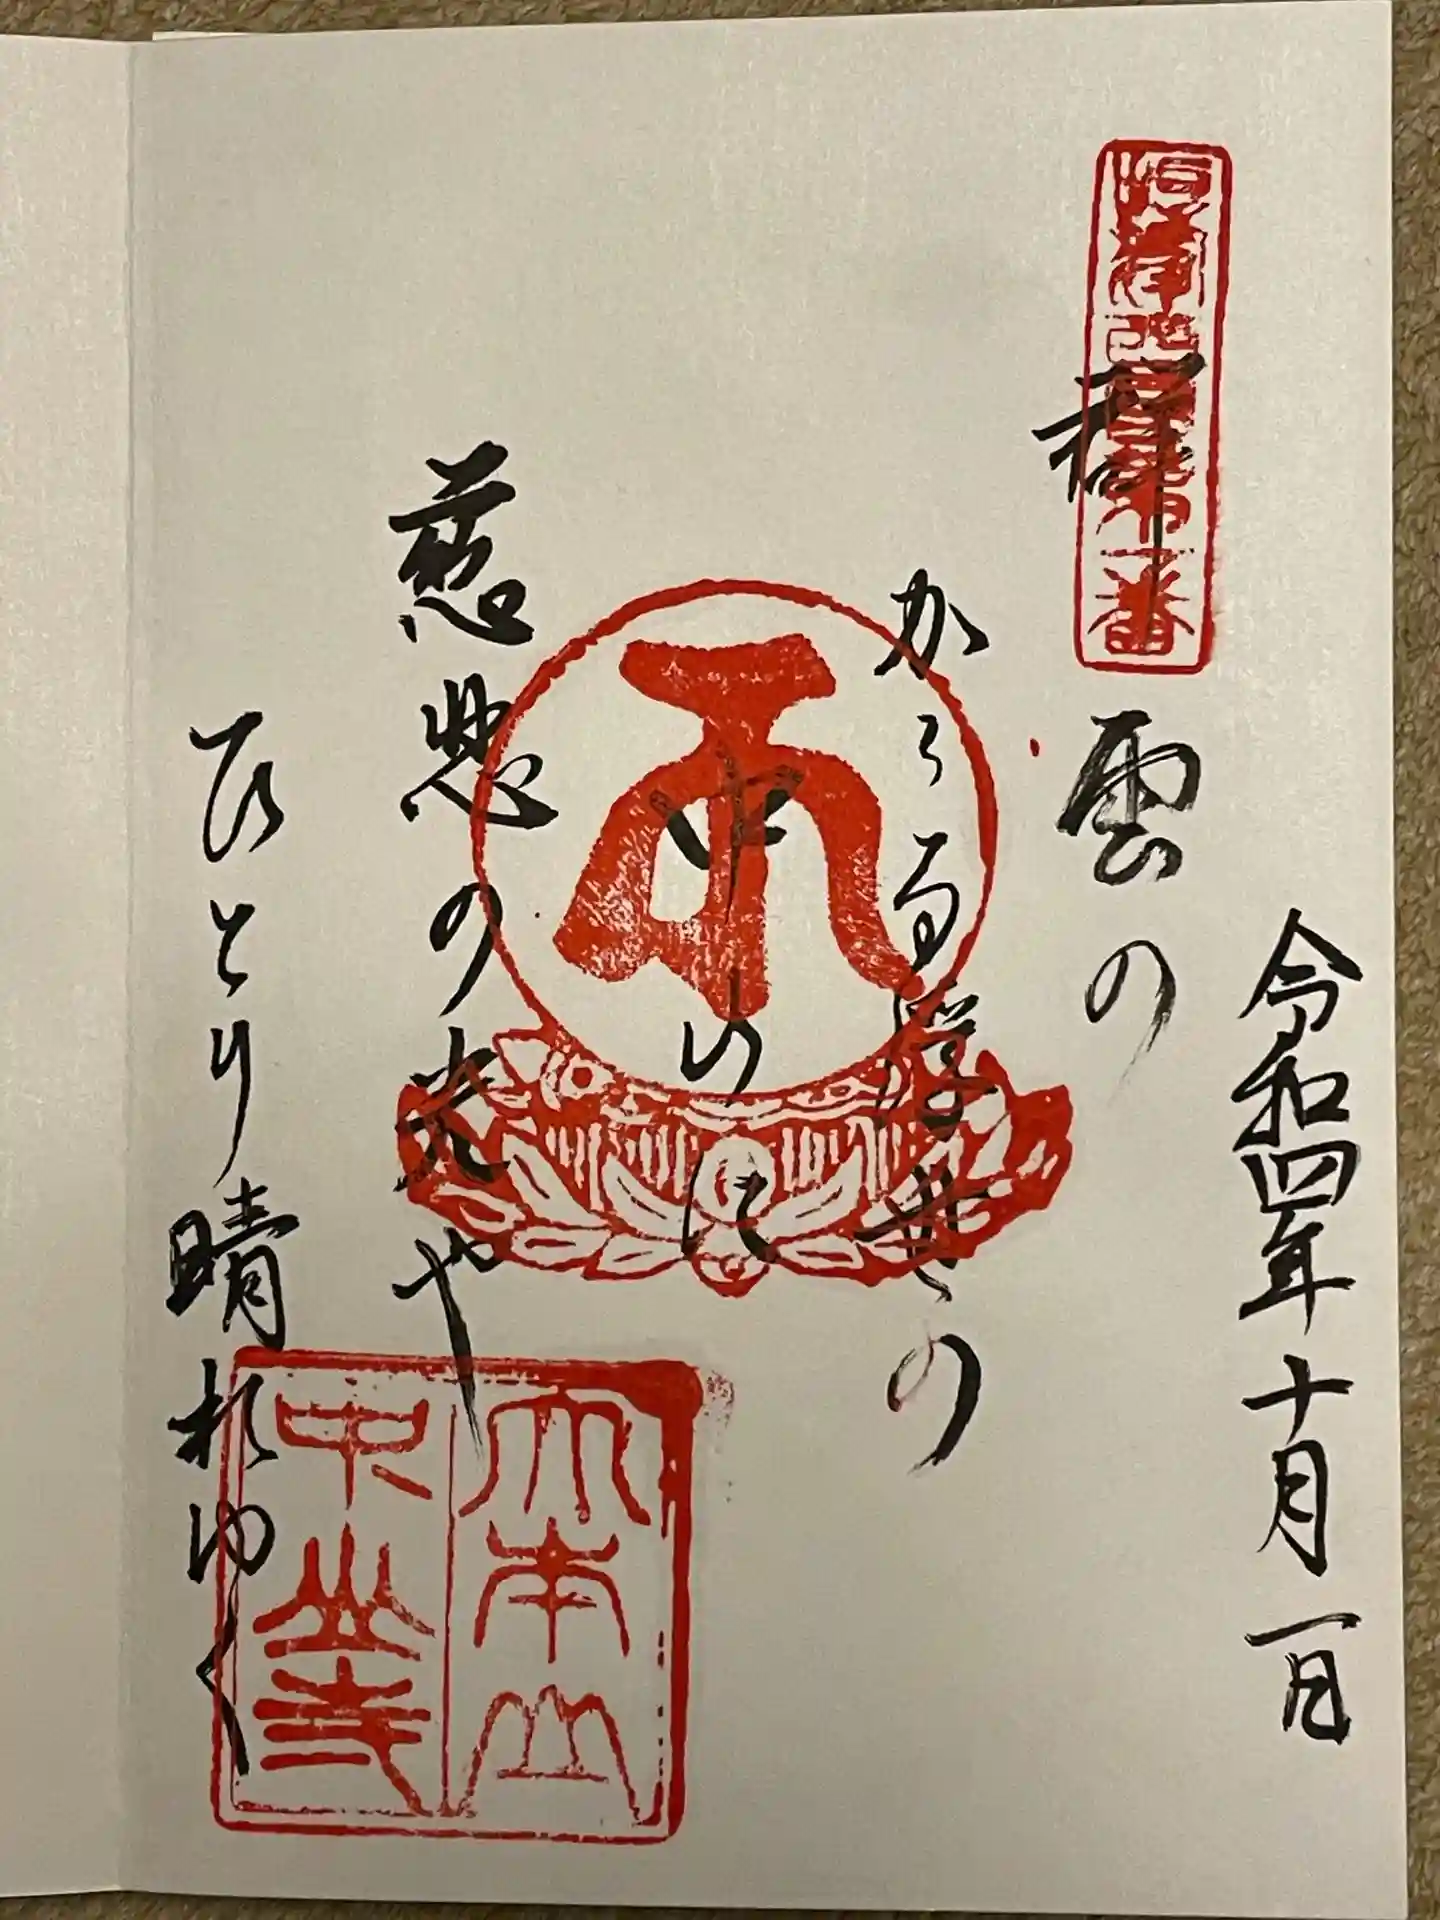 令和四年十月一日
雲の
かゝる浮世の
中山に
慈悲の光や
ひとり晴れゆく
大本山
中山寺